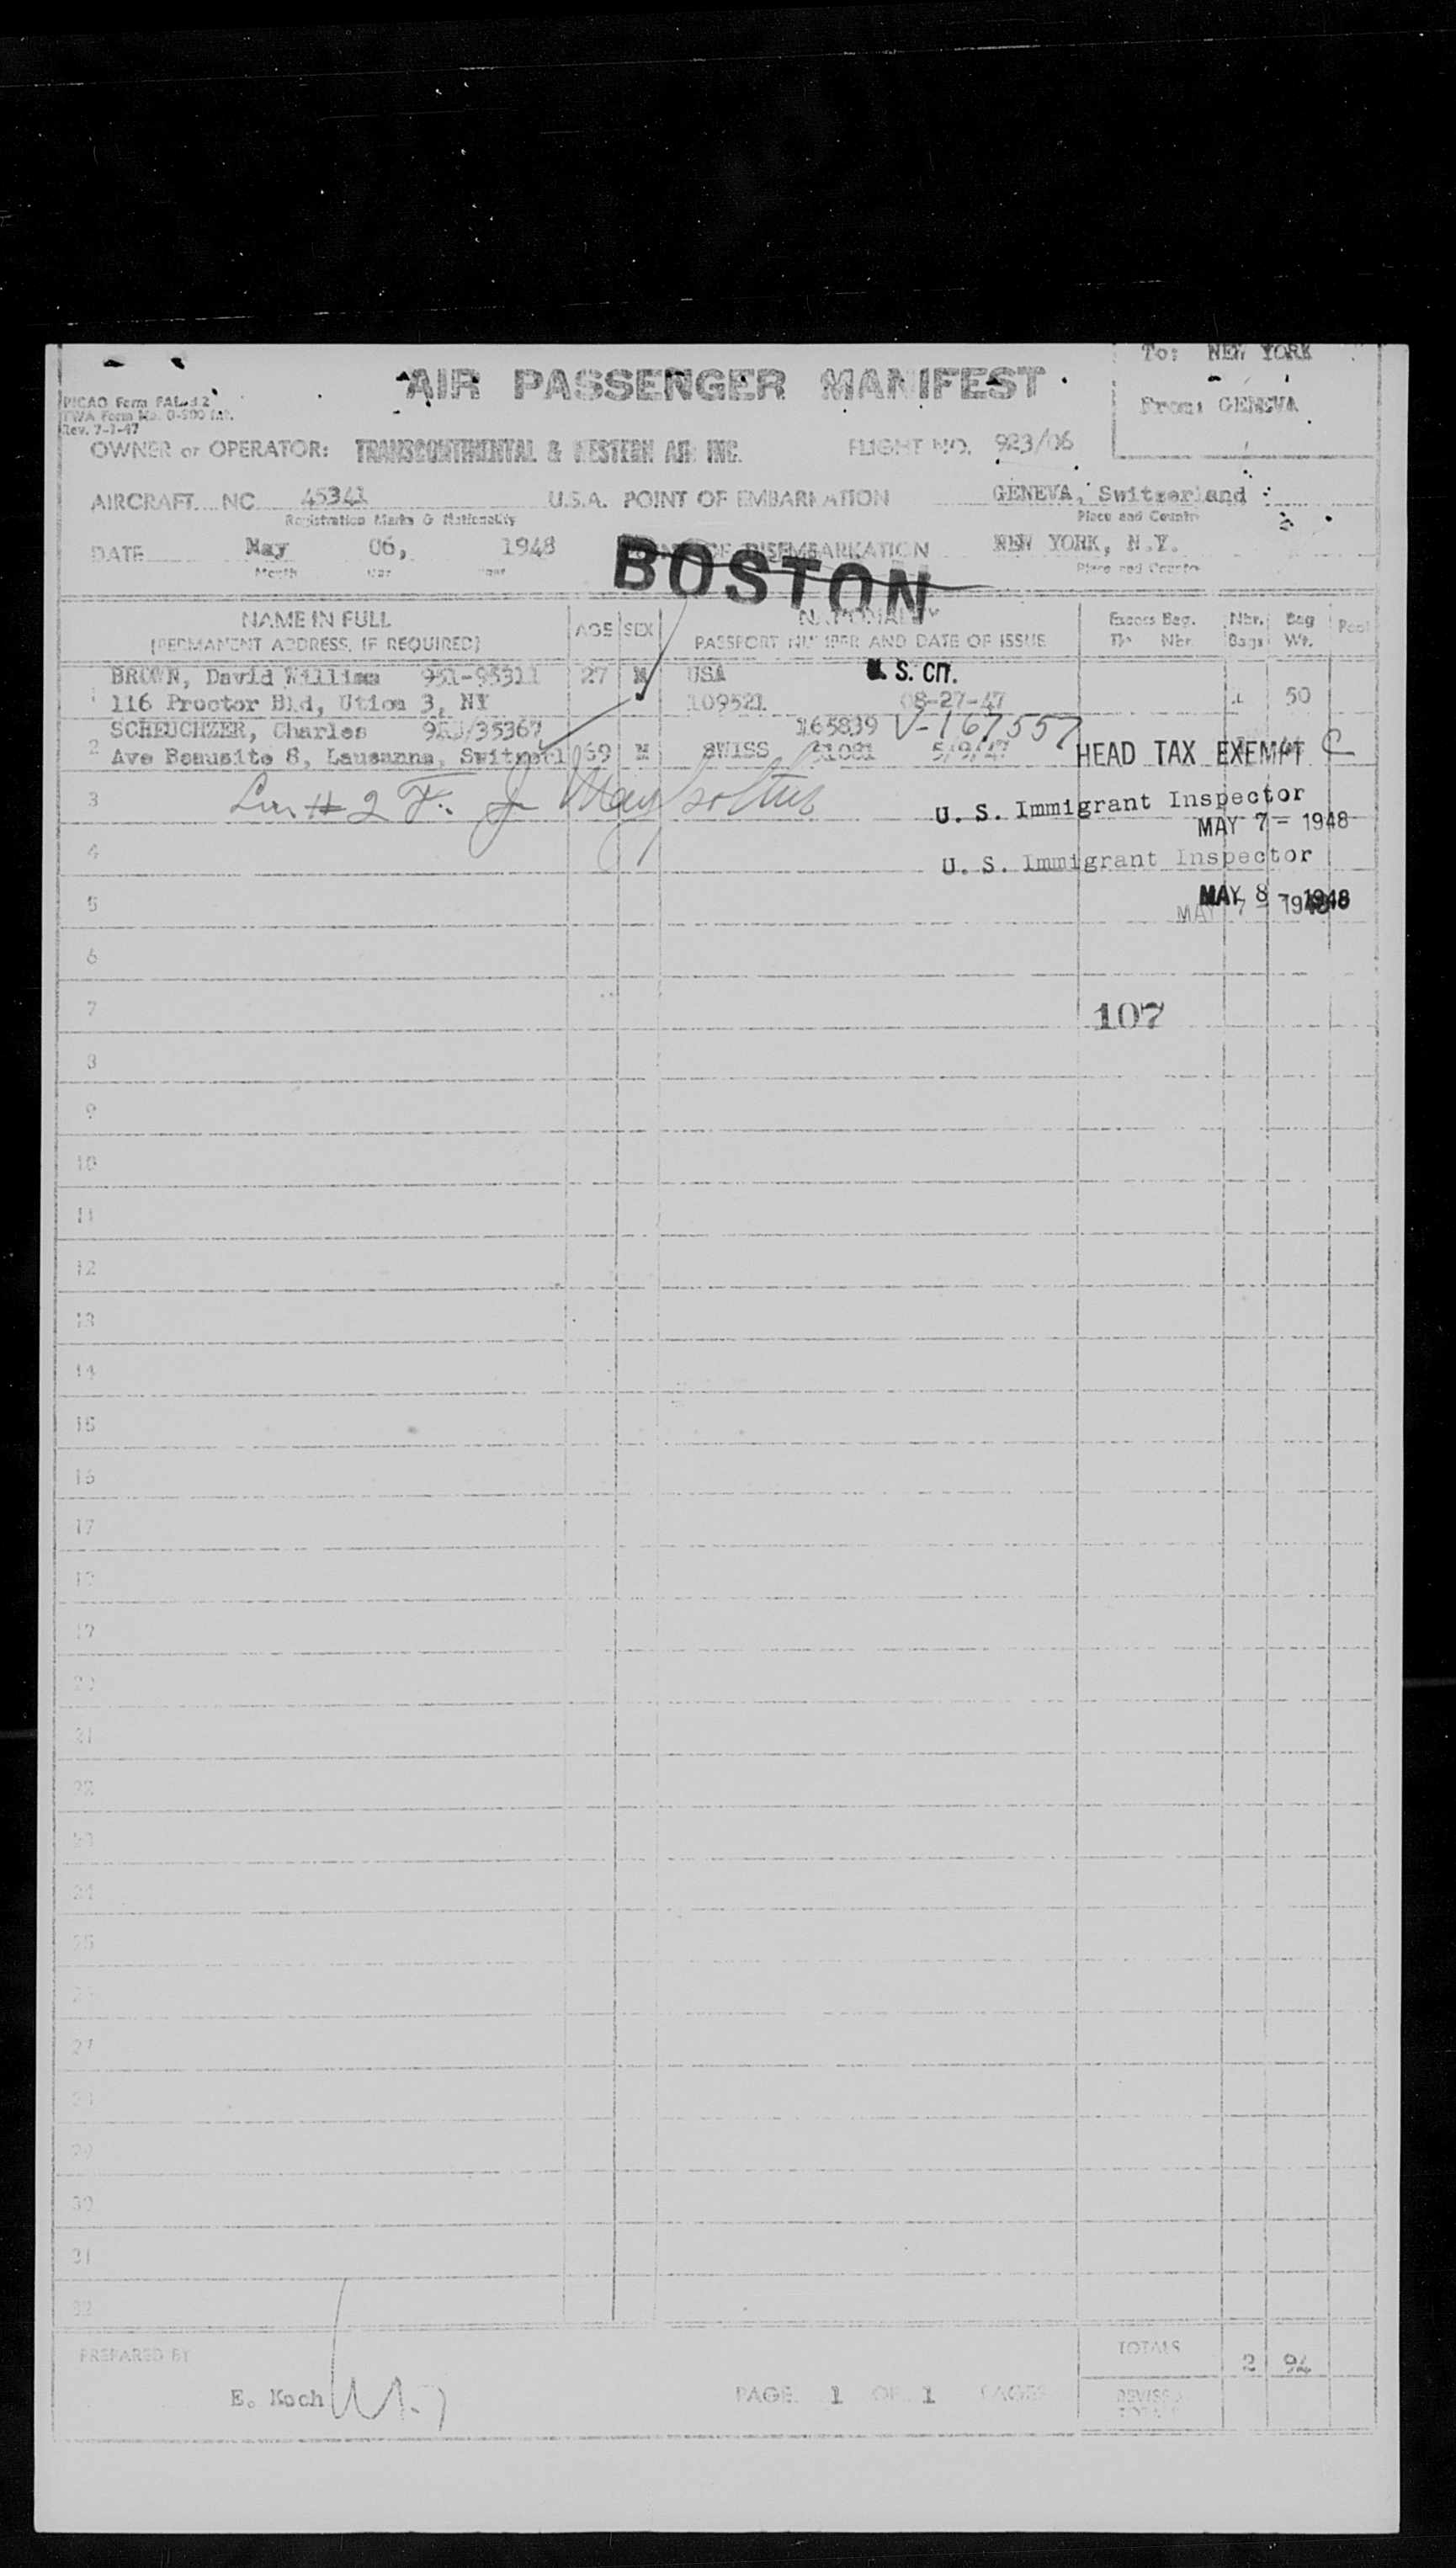 To: NEW YORK
AIR PASSENGER MANIFEST
From: GENEVA
Rev. 7-1-47
OWNER or OPERATOR: TRANSCONTINENTAL & WESTERN AIR INC. FLIGHT NO. 923/06
AIRCRAFT NC 45341 U.S.A. POINT OF EMBARKATION GENEVA, Switzerland
Registration Marks & Nationality Place and Country
DATE May 06, 1948 OF DISEMBARKATION NEW YORK, N.Y.
Month Year Place and Country
BOSTON
NAME IN FULL AGE SEX NATIONALITY Excess Bag. Nbr. Bag Pool
(PERMANENT ADDRESS, IF REQUIRED) PASSPORT NUMBER AND DATE OF ISSUE Nbr. Bags Wt.
BROWN, David William 951-95311 27 M USA U. S. CIT.
1 116 Proctor Bld, Utica 3, NY 109521 08-27-47 1 50
SCHEUCHZER, Charles 165839 V-167557
2 Ave Beausite 8, Lausanne, 69 M SWISS 5/9/47 HEAD TAX EXEMPT C
3
U. S. Immigrant Inspector
MAY 7 - 1948
4 U. S. Immigrant Inspector
5 MAY 8 - 1948
MAY 7 - 1948
6
7 107
8
9
10
11
12
13
14
15
16
17
18
19
20
21
22
23
24
25
26
27
28
29
30
31
32
PREPARED BY TOTALS 2 94
E. Koch PAGE 1 OF 1 PAGES REVISED
TOTALS